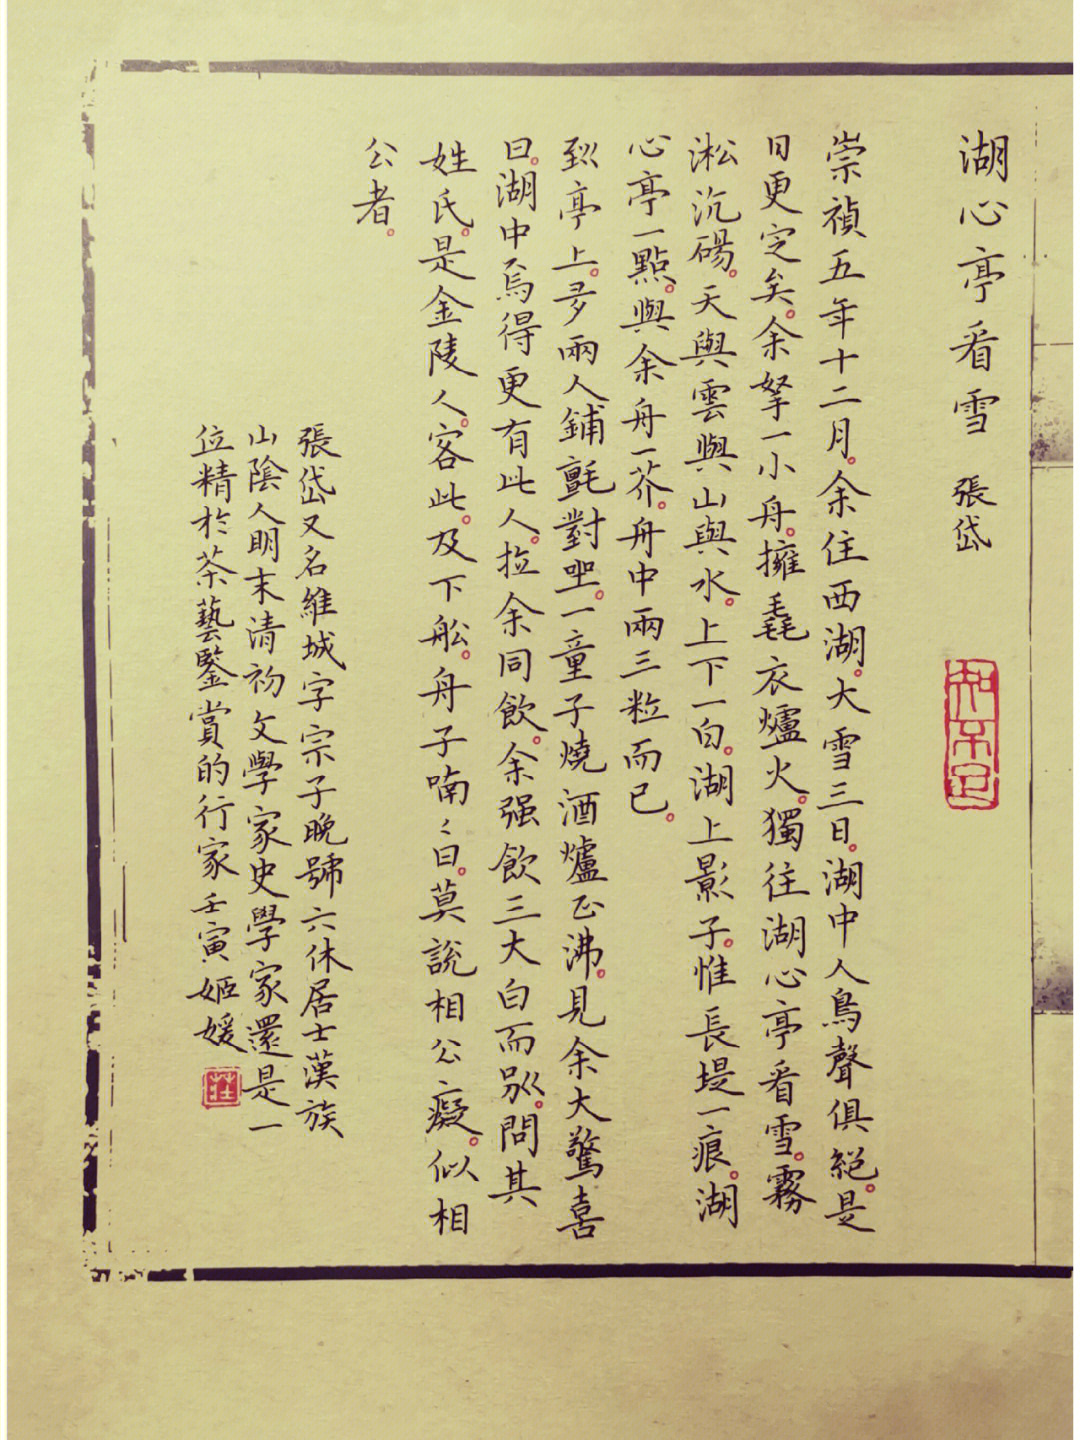 湖心亭看雪 張岱
知不足
崇禎五年十二月。余住西湖。大雪三日。湖中人鳥聲俱絕。是
日更定矣。余拏一小舟。擁毳衣爐火。獨往湖心亭看雪。霧
淞沆碭。天與雲與山與水。上下一白。湖上影子。惟長堤一痕。湖
心亭一點。與余舟一芥。舟中兩三粒而已。
到亭上。有兩人鋪氈對坐。一童子燒酒爐正沸。見余大驚喜
曰。湖中焉得更有此人。拉余同飲。余强飲三大白而別。問其
姓氏。是金陵人。客此。及下船。舟子喃〻曰。莫說相公癡。似相
公者。
張岱又名維城字宗子晚號六休居士漢族
山陰人明末清初文學家史學家還是一
位精於茶藝鑒賞的行家壬寅姬媛
莊